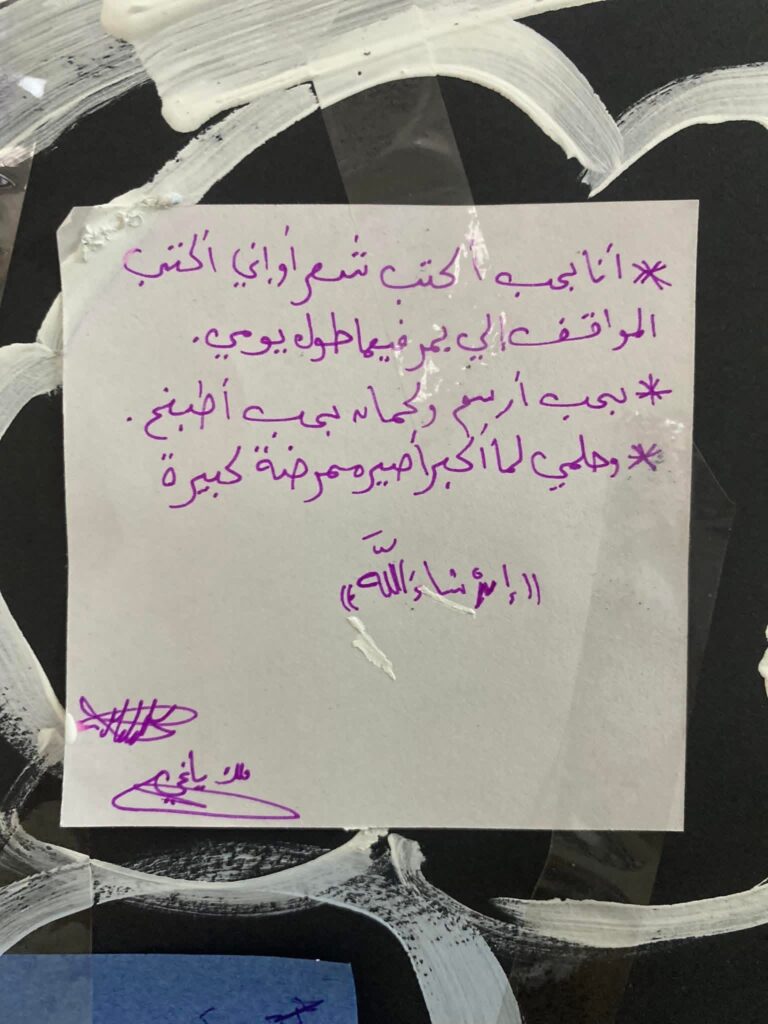 * أنا بحب أكتب شعر أو إني أكتب
المواقف إلي بمر فيها طول يومي.
* بحب أرسم وكمان بحب أطبخ.
* وحلمي لما أكبر أصير ممرضة كبيرة
((إن شاءَ اللَّه))
ملك ياغي